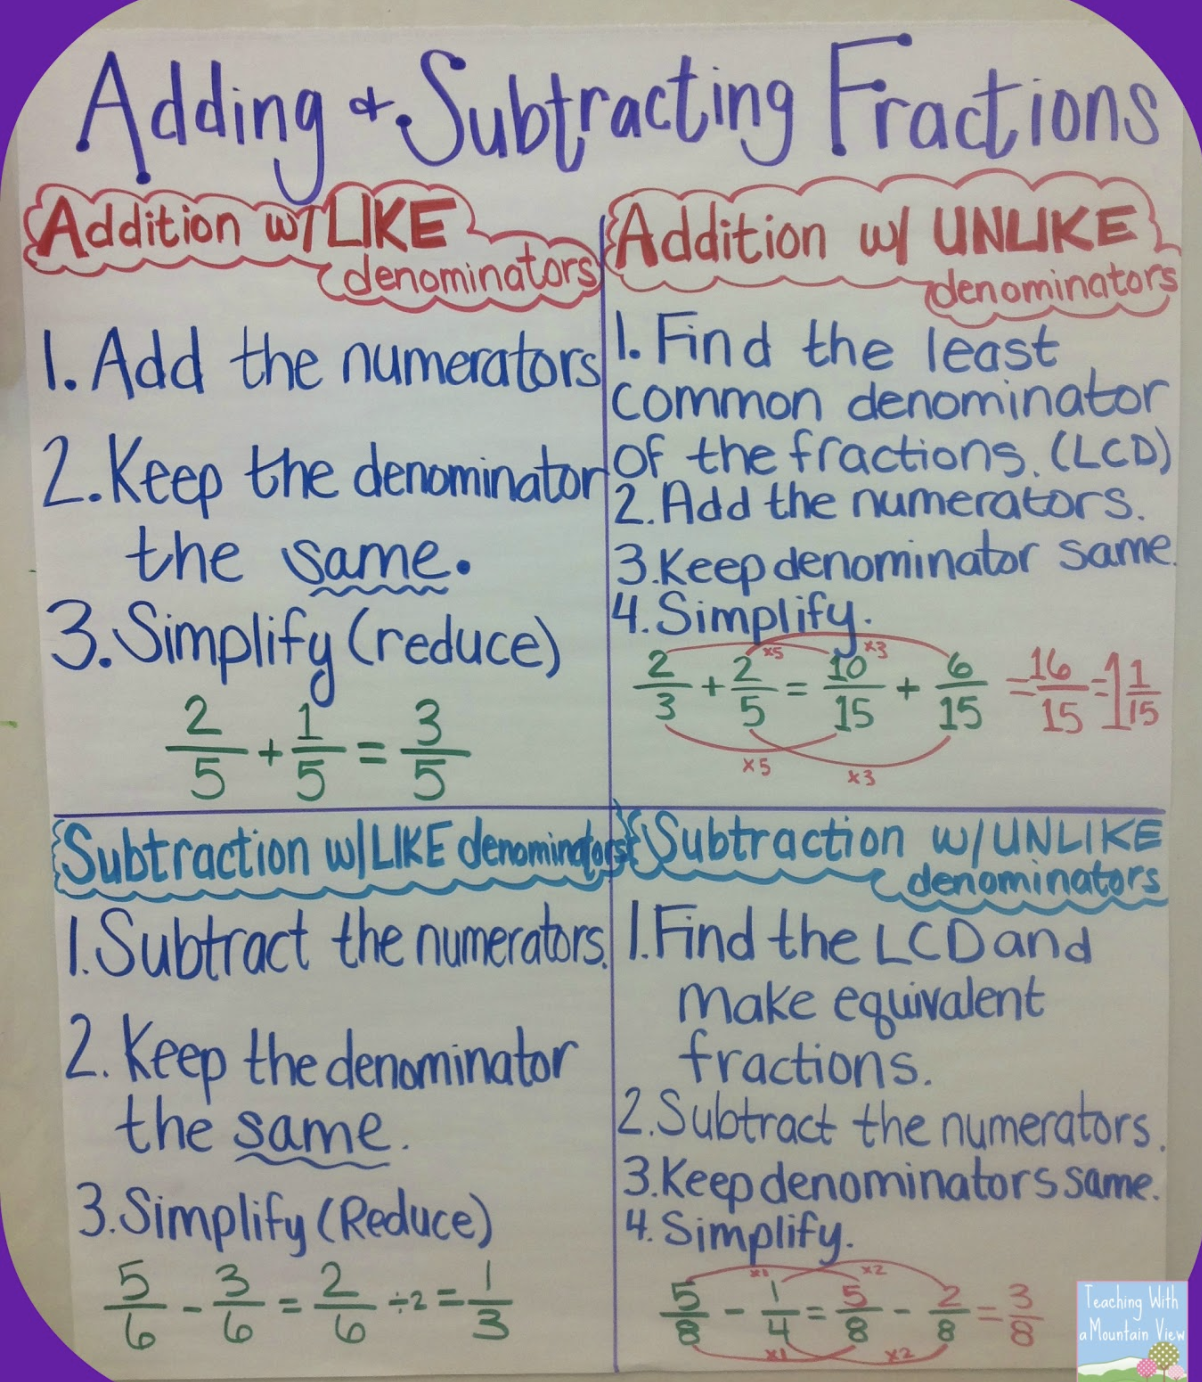 Adding & Subtracting Fractions
Addition w/ LIKE
denominators
1. Add the numerators
2. Keep the denominator
the same.
3. Simplify (reduce)
2/5 + 1/5 = 3/5
Addition w/ UNLIKE
denominators
1. Find the least
common denominator
of the fractions. (LCD)
2. Add the numerators.
3. Keep denominator same.
4. Simplify.
x5 x3
2/3 + 2/5 = 10/15 + 6/15 = 16/15 = 1 1/15
x5 x3
Subtraction w/ LIKE denominators
1. Subtract the numerators.
2. Keep the denominator
the same.
3. Simplify (Reduce)
5/6 - 3/6 = 2/6 ÷2 = 1/3
Subtraction w/ UNLIKE
denominators
1. Find the LCD and
make equivalent
fractions.
2. Subtract the numerators.
3. Keep denominators same.
4. Simplify.
x1 x2
5/8 - 1/4 = 5/8 - 2/8 = 3/8
x1 x2
Teaching With
a Mountain View